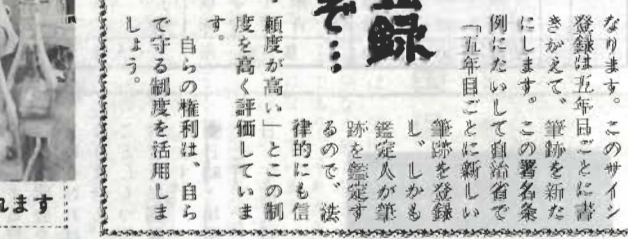 登録
ぞ…
なります。このサイン
登録は五年目ごとに書
きかえて、筆跡を新た
にします。この署名条
例にたいして自治省で
「五年目ごとに新しい
筆跡を登録
し、しかも
鑑定人が筆
跡を鑑定す
るので、法
律的にも信
頼度が高い」とこの制
度を高く評価していま
す。
自らの権利は、自ら
で守る制度を活用しま
しょう。
れます